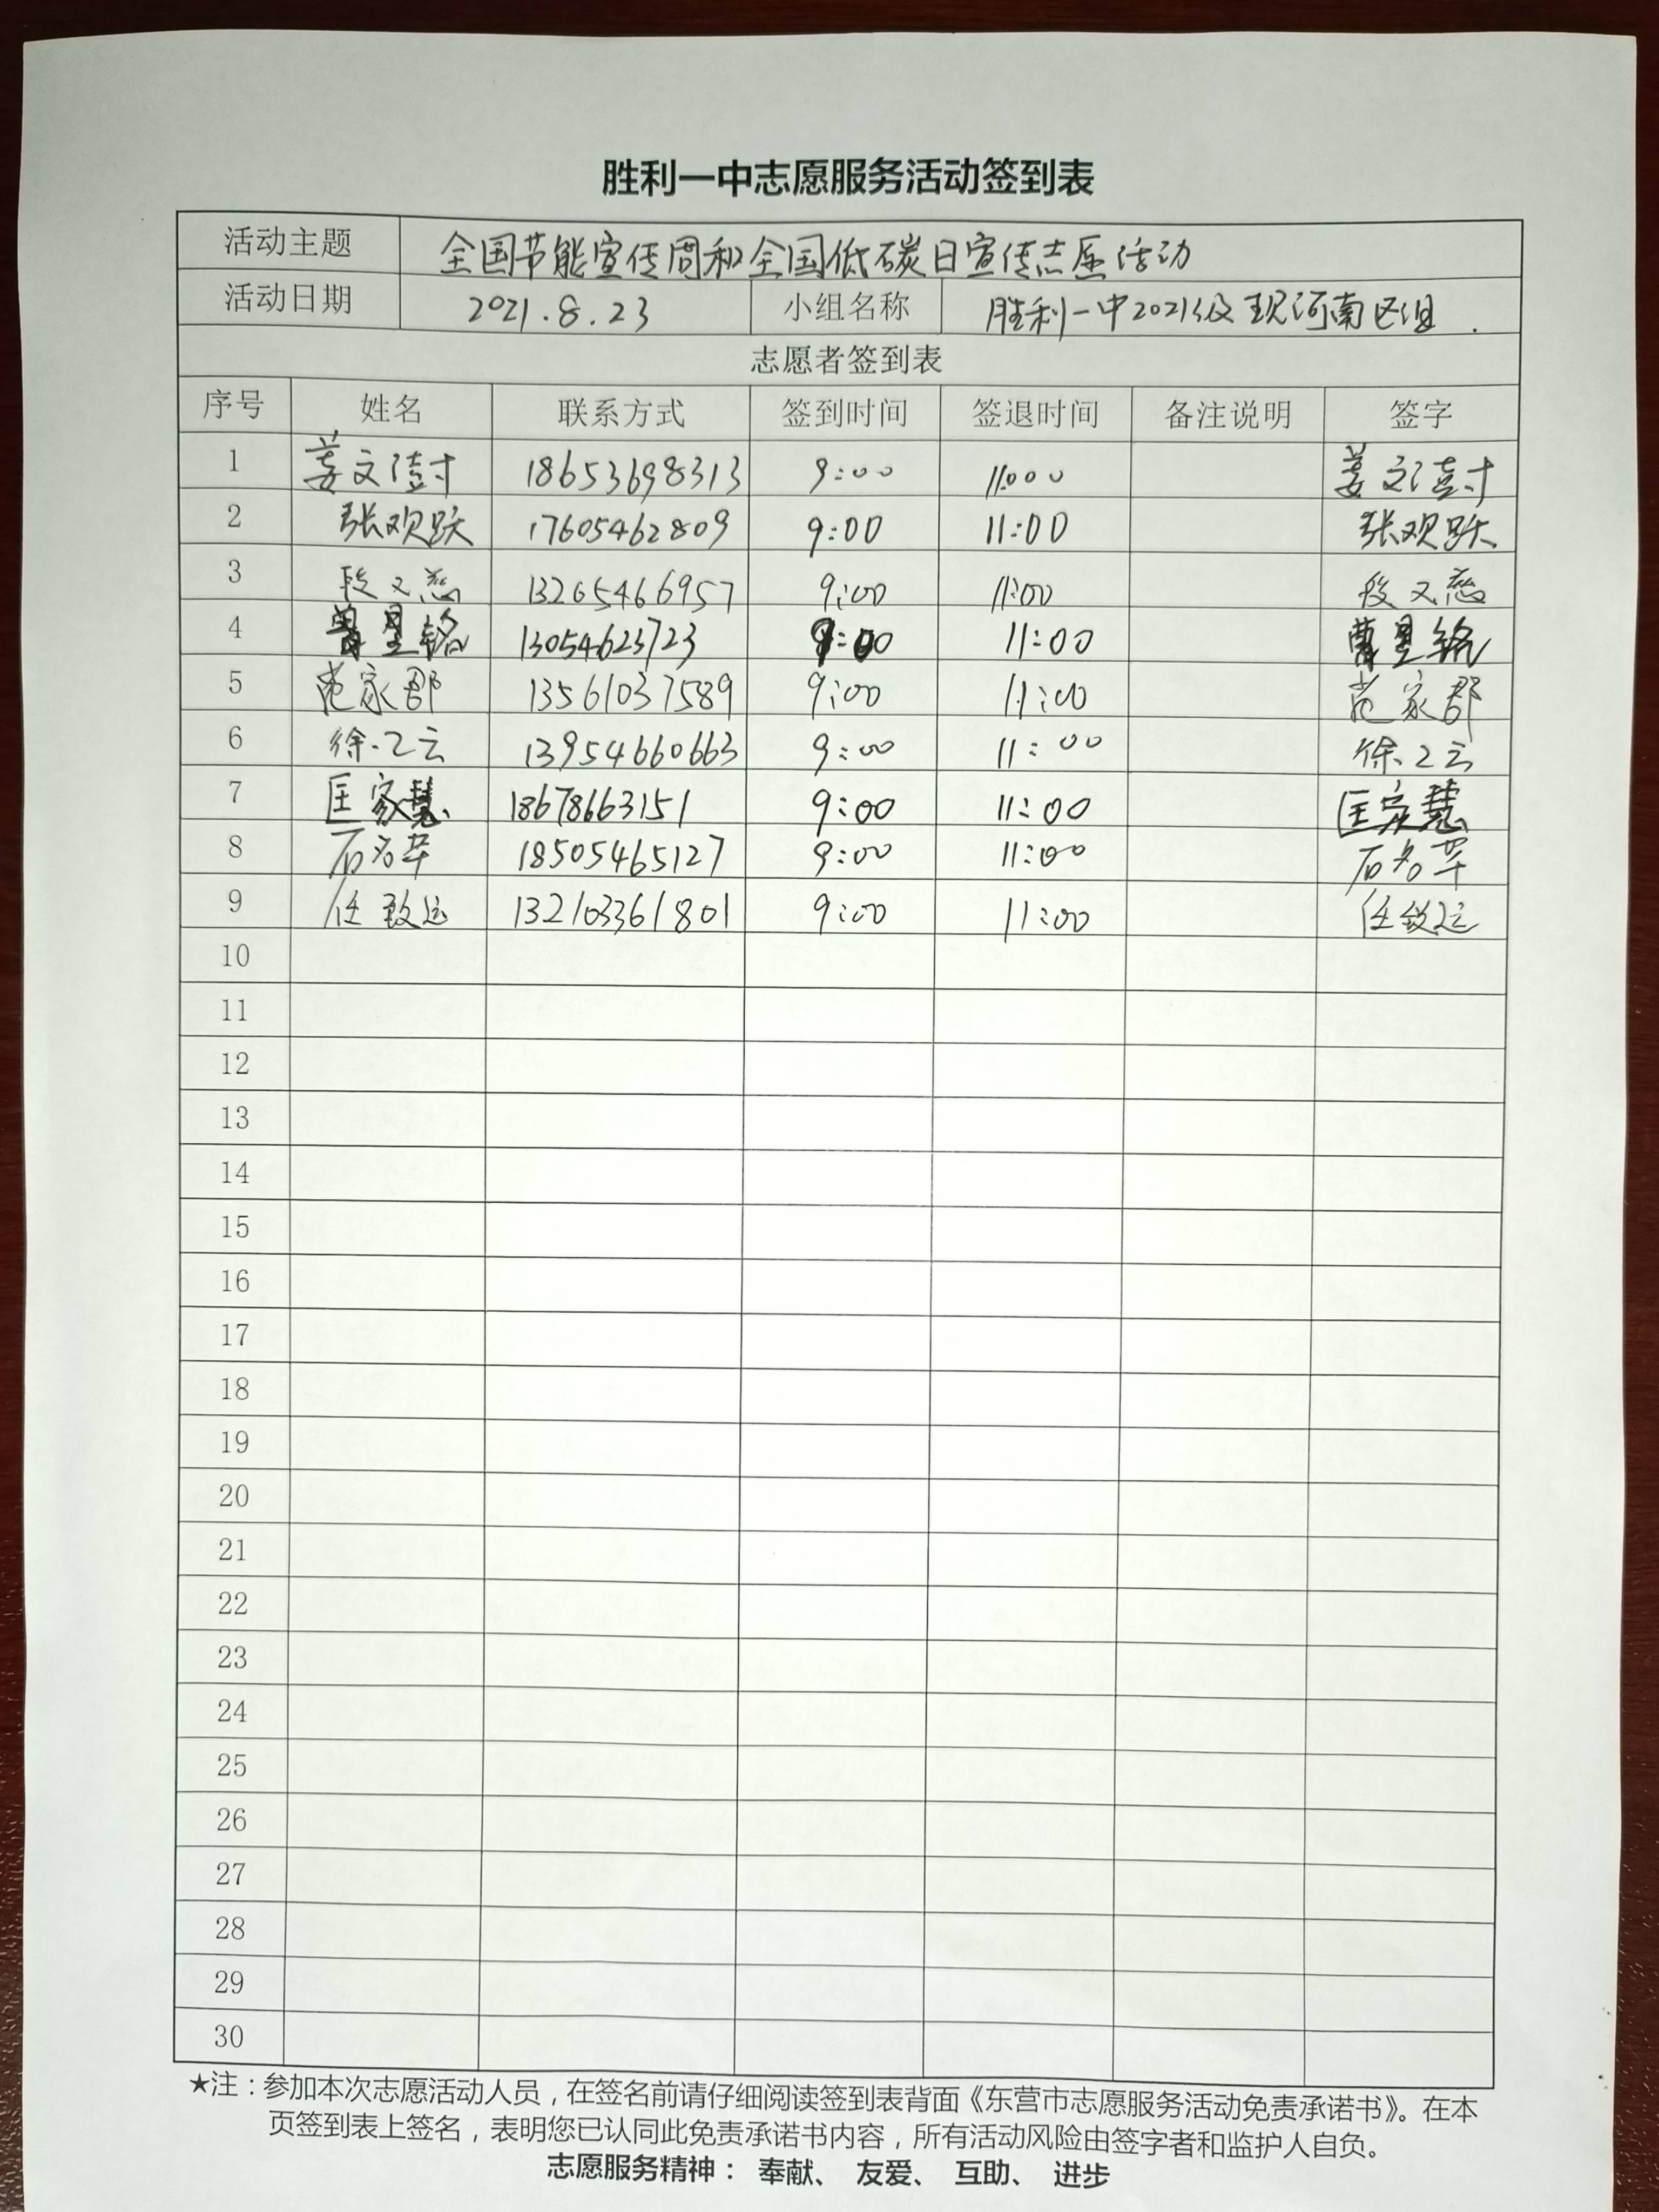 胜利一中志愿服务活动签到表
活动主题 全国节能宣传周和全国低碳日宣传志愿活动
活动日期 2021.8.23 小组名称 胜利一中2021级现河南区组
志愿者签到表
序号 姓名 联系方式 签到时间 签退时间 备注说明 签字
1 姜文澍 18653698313 9:00 11:00 姜文澍
2 张欢跃 17605462809 9:00 11:00 张欢跃
3 段又慈 13265466957 9:00 11:00 段又慈
4 13054623723 9:00 11:00
5 范家郡 13561037589 9:00 11:00 范家郡
6 徐乙云 13954660663 9:00 11:00 徐乙云
7 匡家慧 18678663151 9:00 11:00 匡家慧
8 石名苹 18505465127 9:00 11:00 石名苹
9 任致远 132103361801 9:00 11:00 任致远
10
11
12
13
14
15
16
17
18
19
20
21
22
23
24
25
26
27
28
29
30
★注：参加本次志愿活动人员，在签名前请仔细阅读签到表背面《东营市志愿服务活动免责承诺书》。在本
页签到表上签名，表明您已认同此免责承诺书内容，所有活动风险由签字者和监护人自负。
志愿服务精神： 奉献、 友爱、 互助、 进步